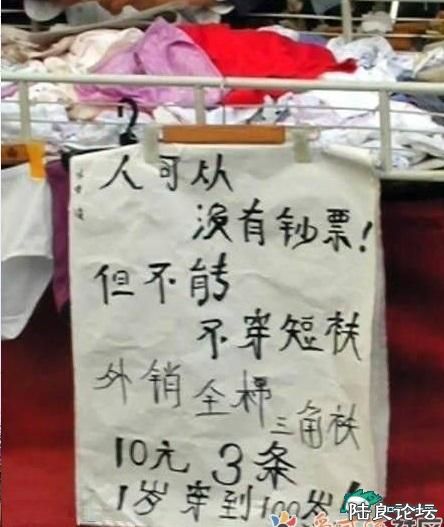 人可从
没有钞票!
但不能
不穿短衭
外销全棉
三角衭
10元 3条
1岁穿到100岁!
陆良论坛